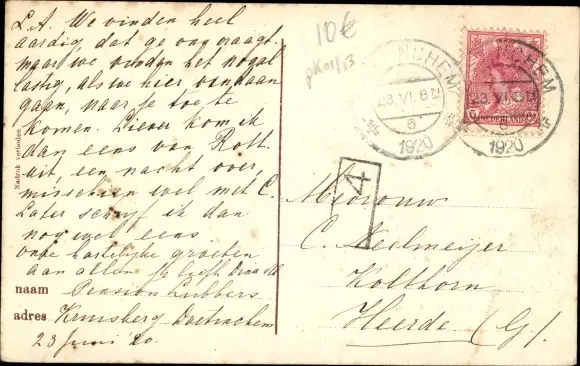 L.A. We vinden heel
aardig, dat ge ons vraagt.
maar we vinden het nogal
lastig, als we hier vandaan
gaan, naar je toe te
komen. Liever kom ik
dan eens van Rott.
uit, een nacht over,
misschien wel met C.
Later schrijf ik dan
nog wel eens.
onze hartelijke groeten
aan allen je liefh.
naam Pension Lubbers
adres Kruisberg Doetinchem
23 Juni '20.
Nadruk verboden
10€
CHEM
23.VI.8N
6
1920
CHEM
23.VI.8N
1920
NEDERLAND
4
Mevrouw
C. Keelmeijer
Kolthorn
Heerde (G.).